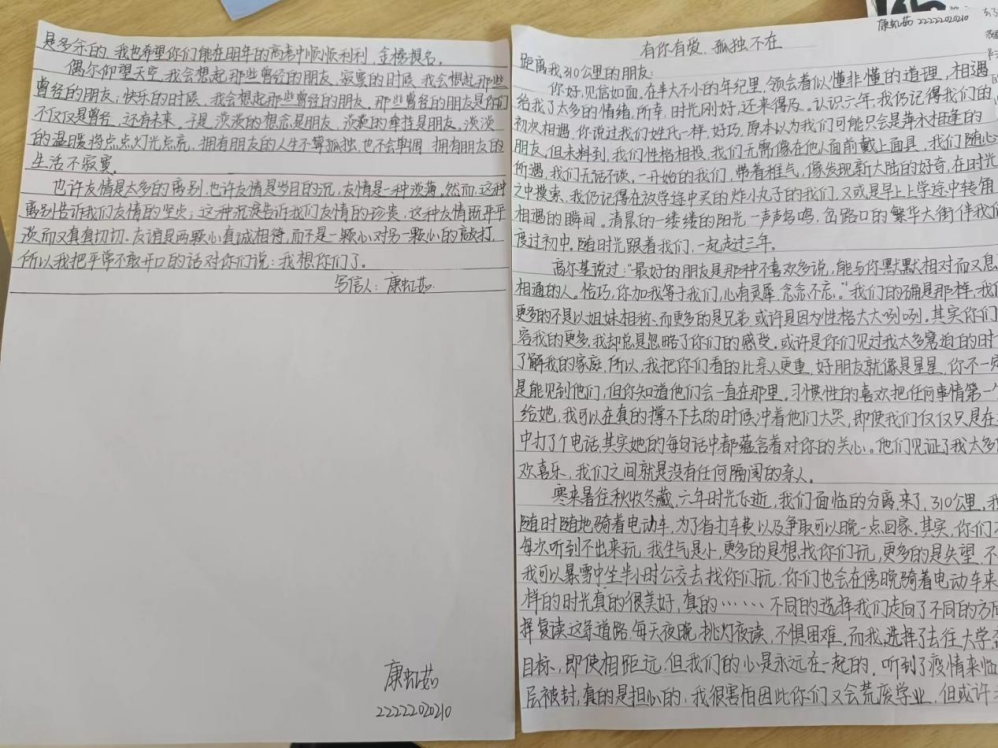 康虹茹 22222020210
有你有爱,孤独不在
距离我310公里的朋友:
你好,见信如面,在半大不小的年纪里,领会着似懂非懂的道理,相遇
给我了太多的情绪,所幸,时光刚好,还来得及。认识六年,我仍记得我们的
初次相遇,你说过我们姓氏一样,好巧,原本以为我们可能只会是萍水相逢的
朋友,但未料到,我们性格相投,我们无需像在他人面前戴上面具,我们随心
所遇,我们无话不谈,一开始的我们,带着稚气,像发现新大陆的好奇,在时光
之中搜索,我仍记得在放学途中买的炸小丸子的我们,又或是早上学途中转角
相遇的瞬间。清晨的一缕缕的阳光,一声声鸟鸣,岔路口的繁华大街伴我们
度过初中,随时光跟着我们,一起走过三年。
高尔基说过:“最好的朋友是那种不喜欢多说,能与你默默相对而又息
相通的人。恰巧,你加我等于我们,心有灵犀,念念不忘。”我们的确是那样,我们
更多的不是以姐妹相称,而更多的是兄弟,或许是因为性格大大咧咧。其实你们
容我的更多,我却总是忽略了你们的感受,或许是你们见过我太多窘迫的时
了解我的家庭,所以,我把你们看的比亲人更重,好朋友就像是星星,你不一定
是能见到他们,但你知道他们会一直在那里。习惯性的喜欢把任何事情第一个
给她,我可以在真的撑不下去的时候冲着他们大哭,即使我们仅仅只是在
中打了个电话,其实她的每句话中都蕴含着对你的关心。他们见证了我太多的
欢喜乐,我们之间就是没有任何隔阂的亲人。
寒来暑往秋收冬藏,六年时光飞逝,我们面临的分离,来了,310公里,我
随时随地骑着电动车,为了省打车费以及争取可以晚一点回家。其实,你们
每次听到不出来玩,我生气是小,更多的是想找你们玩,更多的是失望,不
我可以暴雪中坐半小时公交去找你们玩,你们也会在傍晚骑着电动车来
样的时光真的很美好,真的……不同的选择我们走向了不同的方向
择复读这条道路,每天夜晚,挑灯夜读,不惧困难,而我,选择了去往大学
目标,即使相距远,但我们的心是永远在一起的,听到了疫情来临
层被封,真的是担心的,我很害怕因此你们又会荒废学业,但或许
是多余的,我也希望你们能在明年的高考中顺顺利利,金榜提名。
偶尔仰望天空,我会想起那些曾经的朋友,寂寞的时候,我会想起那些
曾经的朋友;快乐的时候,我会想起那些曾经的朋友,那些曾经的朋友是你们
不仅仅是曾经,还有未来。于是,淡淡的想念是朋友,淡淡的牵挂是朋友。淡淡
的温暖将点点灯光点亮,拥有朋友的人生不算孤独,也不会单调,拥有朋友的
生活不寂寞。
也许友情是太多的离别,也许友情是岁月的沉,友情是一种淡薄。然而,这种
离别告诉我们友情的坚贞,这种沉淀告诉我们友情的珍贵,这种友情既平平
淡而又真真切切。友谊是两颗心真诚相待,而不是一颗心对另一颗心的敲打,
所以我把平常不敢开口的话对你们说:我想你们了。
写信人:康虹茹
康虹茹
22222020210